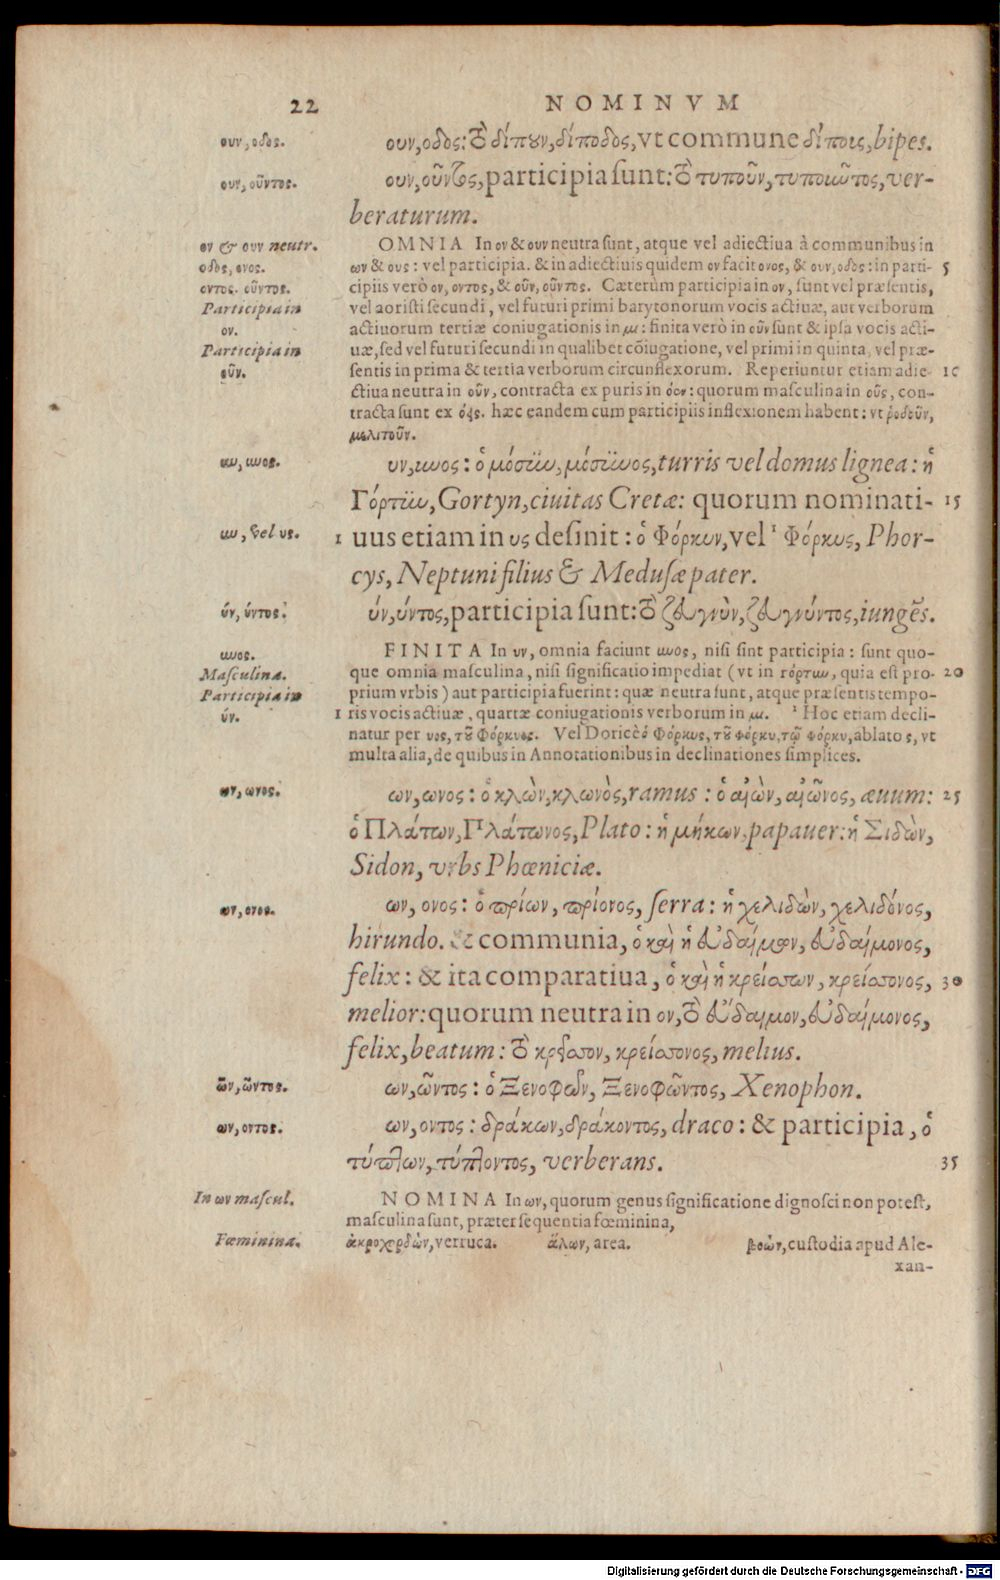 22 NOMINVM
ουν, οδος.
ουν, οδος: τὸ δίπουν, δίποδος, vt commune δίπους, bipes.
ουν, οῦντος.
ουν, οῦντος, participia sunt: τὸ τυποῦν, τυποῦντος, ver-
beraturum.
ον & ουν neutr.
OMNIA In ον & ουν neutra sunt, atque vel adiectiua à communibus in
οδος, ονος.
ων & ους: vel participia. & in adiectiuis quidem ον facit ονος, & ουν, οδος: in parti- 5
οντος. οῦντος.
cipiis verò ον, οντος, & οῦν, οῦντος. Cæterùm participia in ον, sunt vel præsentis,
Participia in
vel aoristi secundi, vel futuri primi barytonorum vocis actiuæ, aut verborum
ον.
actiuorum tertiæ coniugationis in μι: finita verò in οῦν sunt & ipsa vocis acti-
Participia in
uæ, sed vel futuri secundi in qualibet cōiugatione, vel primi in quinta, vel præ-
οῦν.
sentis in prima & tertia verborum circunflexorum. Reperiuntur etiam adie- 10
ctiua neutra in οῦν, contracta ex puris in όον: quorum masculina in οῦς, con-
tracta sunt ex όος. hæc eandem cum participiis inflexionem habent: vt ῥοδοῦν,
μελιτοῦν.
υν, υνος.
υν, υνος: ὁ μόσσυν, μόσσυνος, turris vel domus lignea: ἡ
Γόρτυν, Gortyn, ciuitas Cretæ: quorum nominati- 15
υν, vel υς.
1 uus etiam in υς desinit: ὁ Φόρκυν, vel ¹ Φόρκυς, Phor-
cys, Neptuni filius & Medusæ pater.
ύν, ύντος.
ύν, ύντος, participia sunt: τὸ ζευγνὺν, ζευγνύντος, iungēs.
υνος.
FINITA In υν, omnia faciunt υνος, nisi sint participia: sunt quo-
Masculina.
que omnia masculina, nisi significatio impediat (vt in Γόρτυν, quia est pro- 20
Participia in
prium vrbis) aut participia fuerint: quæ neutra sunt, atque præsentis tempo-
ύν.
1 ris vocis actiuæ, quartæ coniugationis verborum in μι. ¹ Hoc etiam decli-
natur per υος, τοῦ Φόρκυος. Vel Doricè ὁ Φόρκυς, τοῦ Φόρκυ, τῷ Φόρκυ, ablato ς, vt
multa alia, de quibus in Annotationibus in declinationes simplices.
ων, ωνος.
ων, ωνος: ὁ κλὼν, κλωνὸς, ramus: ὁ αἰὼν, αἰῶνος, æuum: 25
ὁ Πλάτων, Πλάτωνος, Plato: ἡ μήκων, papauer: ἡ Σιδὼν,
Sidon, vrbs Phœniciæ.
ων, ονος.
ων, ονος: ὁ πρίων, πρίονος, serra: ἡ χελιδὼν, χελιδόνος,
hirundo. & communia, ὁ καὶ ἡ εὐδαίμων, εὐδαίμονος,
felix: & ita comparatiua, ὁ καὶ ἡ κρείσσων, κρείσσονος, 30
melior: quorum neutra in ον, τὸ εὔδαιμον, εὐδαίμονος,
felix, beatum: τὸ κρεῖσσον, κρείσσονος, melius.
ῶν, ῶντος.
ων, ῶντος: ὁ Ξενοφῶν, Ξενοφῶντος, Xenophon.
ων, οντος.
ων, οντος: δράκων, δράκοντος, draco: & participia, ὁ
τύπτων, τύπτοντος, verberans. 35
In ων mascul.
NOMINA In ων, quorum genus significatione dignosci non potest,
masculina sunt, præter sequentia fœminina,
Fœminina.
ἀκροχορδὼν, verruca. ἅλων, area. βεὼν, custodia apud Ale-
xan-
Digitalisierung gefördert durch die Deutsche Forschungsgemeinschaft - DFG